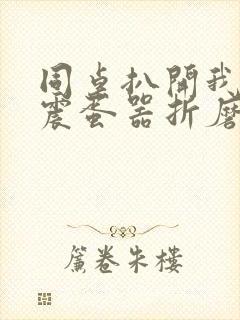 同桌扒開我
震蛋器折磨
簾卷朱樓